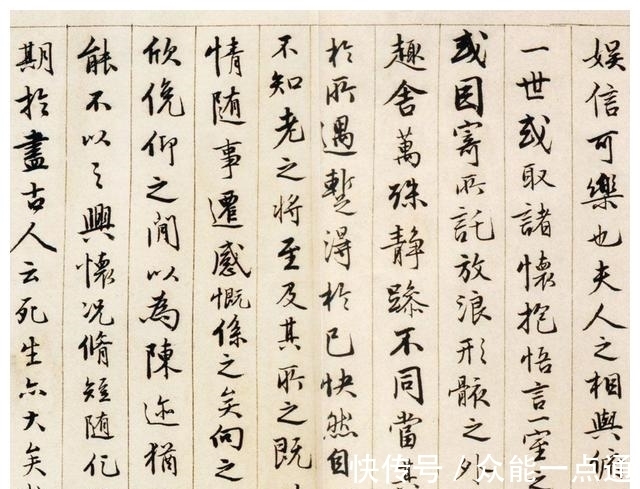 娱信可樂也夫人之相與俯
一世或取諸懷抱悟言一室之
或因寄所託放浪形骸之外
趣舍萬殊静躁不同當其
於所遇蹔得於己快然自
不知老之將至及其所之既
情随事遷感慨係之矣向之
欣俛仰之間以為陳迹猶
能不以之興懷况脩短随化
期於盡古人云死生亦大矣
快传号/众能一点通